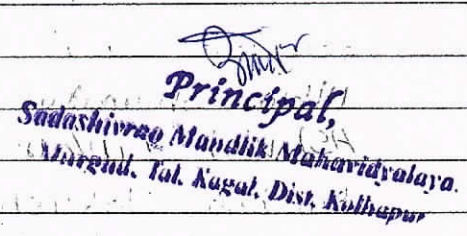 Principal,
Sadashivrao Mandlik Mahavidyalaya.
Murgud. Tal. Kagal. Dist. Kolhapur